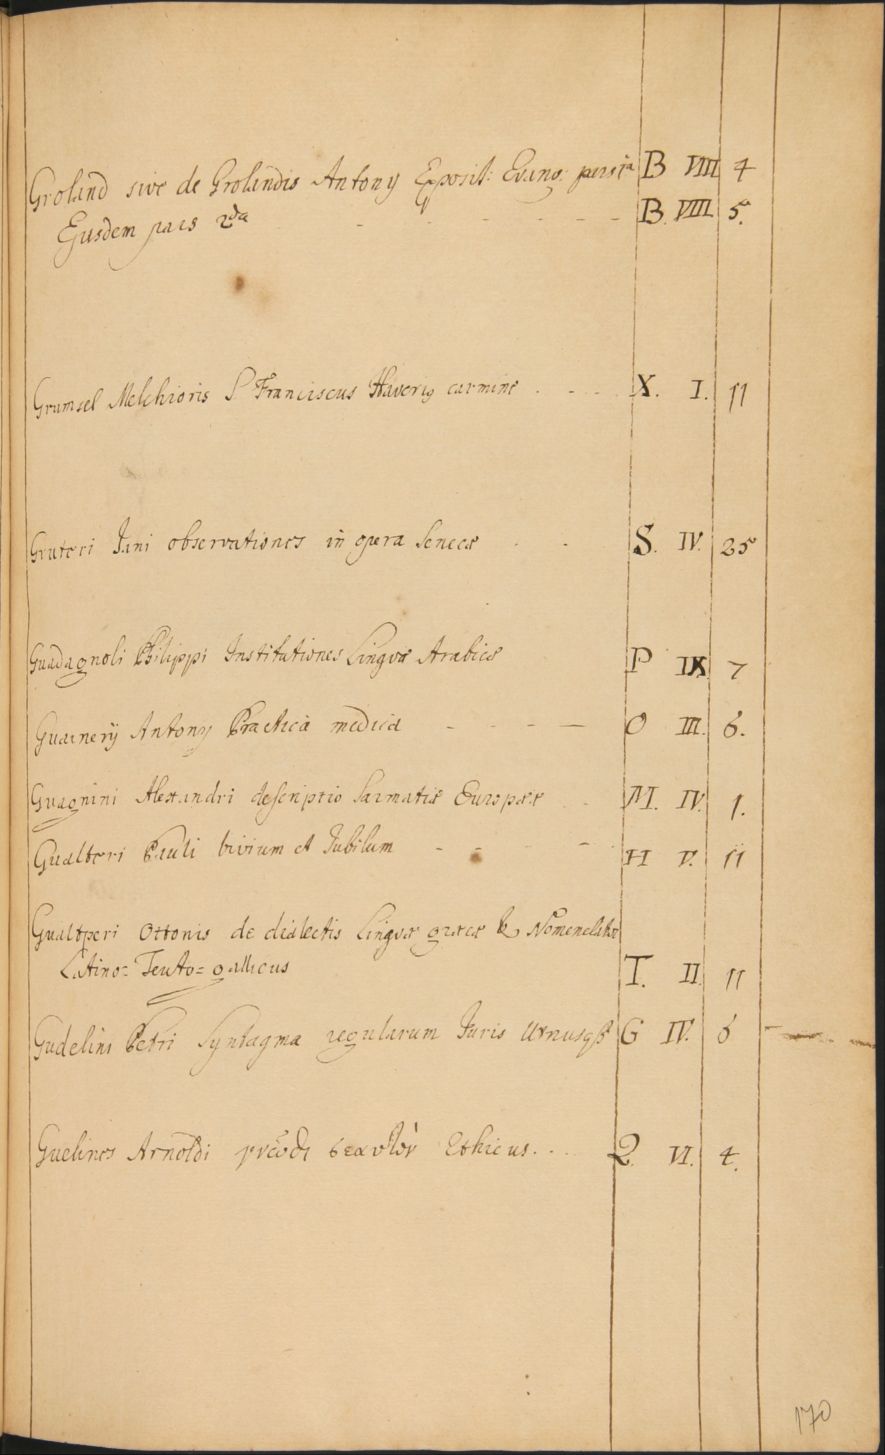 Groland sive de Grolandis Antonij Exposit: Evang: pars 1ª B VIII 4
Ejusdem pars 2da - - - - - - B. VIII. 5.
Grumsel Melchioris S Franciscus Xaverig carmine . - - . X. I. 11
Gruteri Jani observationes in opera Senecæ - - S. IV. 25
Guadagnoli Philippi Institutiones Linguæ Arabicæ P IX 7
Guainerij Antonij Practica medica - - - - O III. 6.
Guagnini Alexandri descriptio Sarmatiæ Europææ . . M. IV. 1.
Gualteri Pauli bivium et Jubilum - - - - H V. 11
Gualtperi Ottonis de dialectis Linguæ græcæ & Nomenclator
Latino= Teuto= gallicus T. II. 11
Gudelini Petri Syntagma regularum Juris Utriusqß G IV. 6
Guelines Arnoldi γνῶθι σεαυτὸν Ethicus. . . . Q. VI. 4.
170